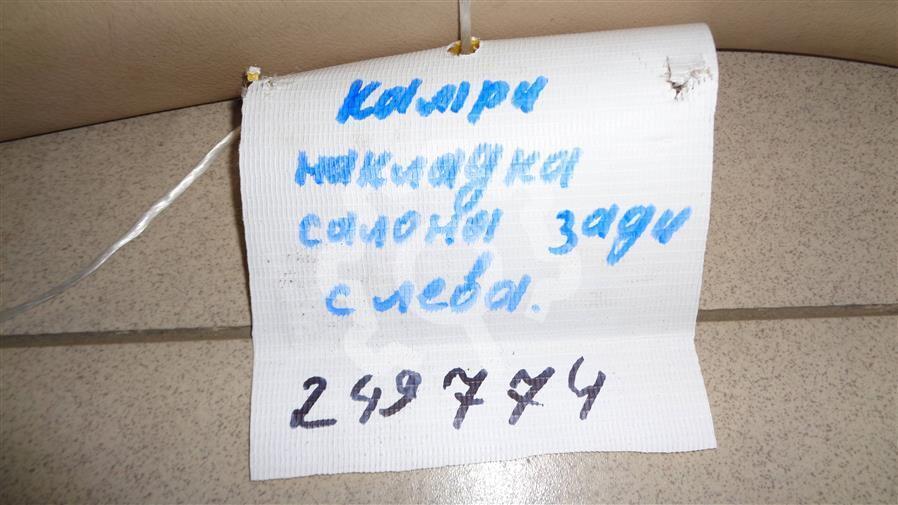 Камри
накладка
салона зади
слева.
249774